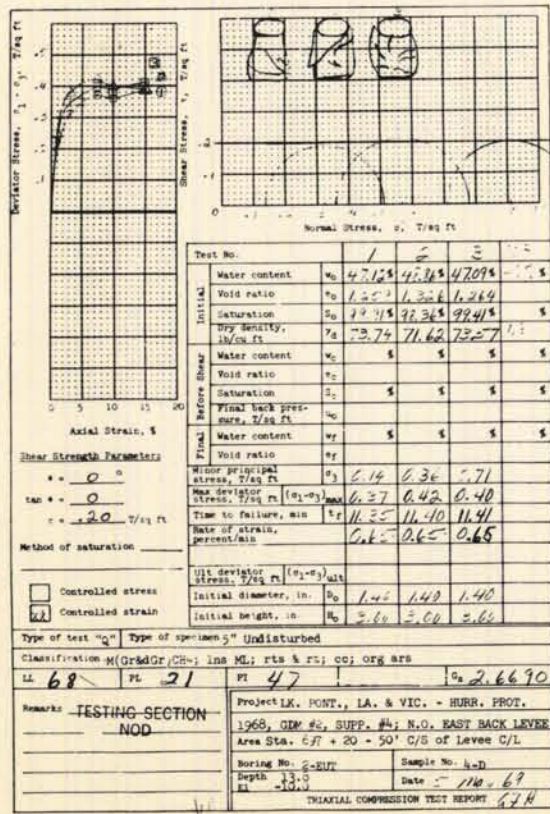 Deviator Stress, σ1 - σ3, T/sq ft
Shear Stress, τ, T/sq ft
.5
.4
.3
.2
.1
0 5 10 15 20
Axial Strain, %
Normal Stress, σ, T/sq ft
Shear Strength Parameters
φ = 0 °
tan φ = 0
c = .20 T/sq ft
Method of saturation
Controlled stress
Controlled strain
Test No. 1 2 3
Initial
Water content w0 47.12% 47.86% 47.09% %
Void ratio e0 1.326 1.264
Saturation S0 99.31% 98.36% 99.41% %
Dry density, lb/cu ft γd 73.74 71.62 73.57
Before Shear
Water content wc % % % %
Void ratio ec
Saturation Sc % % % %
Final back pressure, T/sq ft u0
Final
Water content wf % % % %
Void ratio ef
Minor principal stress, T/sq ft σ3 0.14 0.36 .71
Max deviator stress, T/sq ft (σ1-σ3)max 0.37 0.42 0.40
Time to failure, min tf 11.35 11.40 11.41
Rate of strain, percent/min 0.65 0.65 0.65
Ult deviator stress, T/sq ft (σ1-σ3)ult
Initial diameter, in. D0 1.40 1.40 1.40
Initial height, in. H0 3.60 3.60 3.60
Type of test "Q" Type of specimen 5" Undisturbed
Classification M(Gr&dGr; lns ML; rts & rt; cc; org ars
LL 68 PL 21 PI 47 Gs 2.6690
Remarks TESTING SECTION
NOD
Project LK. PONT., LA. & VIC. - HURR. PROT.
1968, GDM #2, SUPP. #4; N.O. EAST BACK LEVEE
Area Sta. + 20 - 50' C/S of Levee C/L
Boring No. 2-EUT Sample No. 4-D
Depth 13.0
El -10.0
Date 69
TRIAXIAL COMPRESSION TEST REPORT